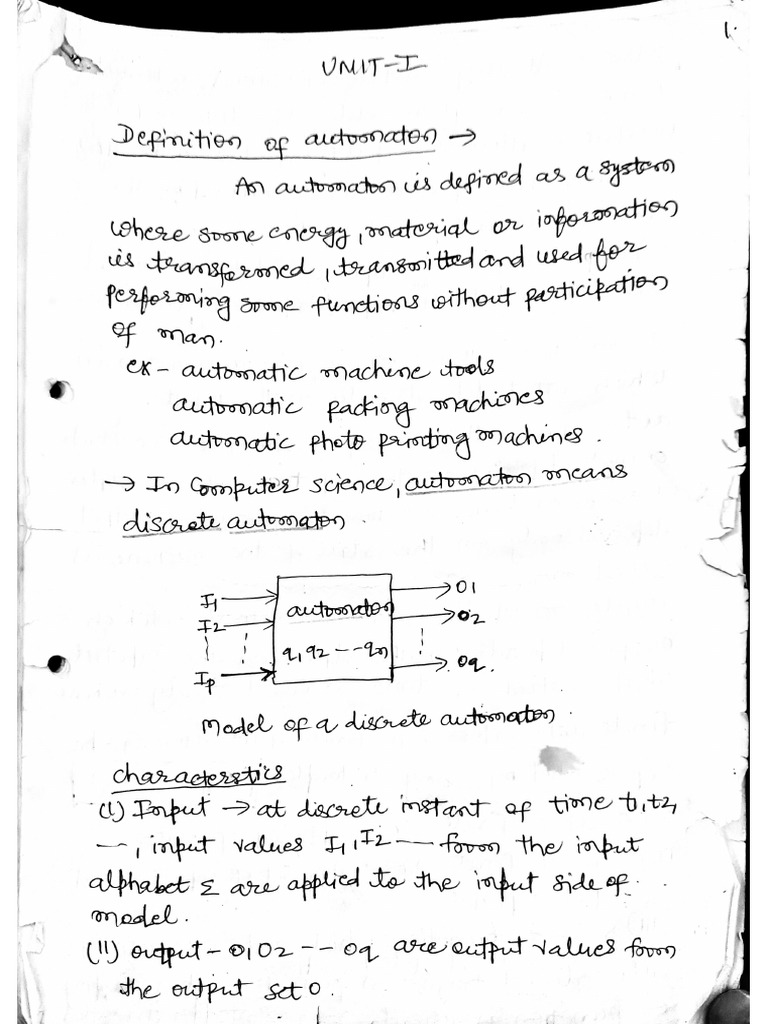 1.
UNIT-I
Definition of automaton →
An automaton is defined as a system
where some energy, material or information
is transformed, transmitted and used for
performing some functions without participation
of man.
ex - automatic machine tools
automatic packing machines
automatic photo printing machines.
→ In Computer science, automaton means
discrete automaton.
I1
I2
Ip
automaton
q1 q2 --- qn
O1
O2
Oq.
Model of a discrete automaton.
characterstics
(I) Input → at discrete instant of time t1, t2,
---, input values I1, I2 --- from the input
alphabet Σ are applied to the input side of
model.
(II) output - O1 O2 --- Oq are output values from
the output set O.